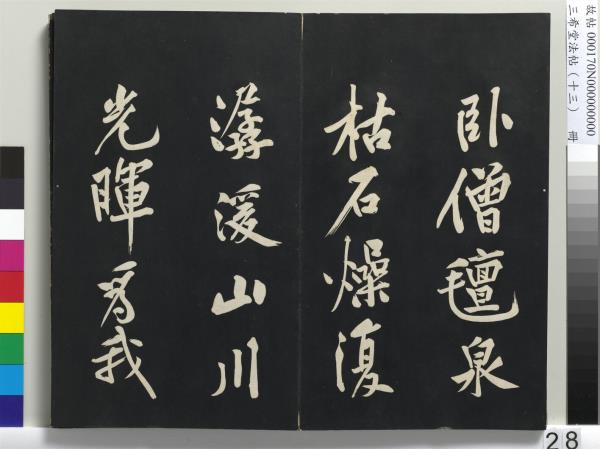 卧僧氊泉
枯石燥復
潺湲山川
光暉為我
故帖 000170N000000000
三希堂法帖（十三） 冊
28